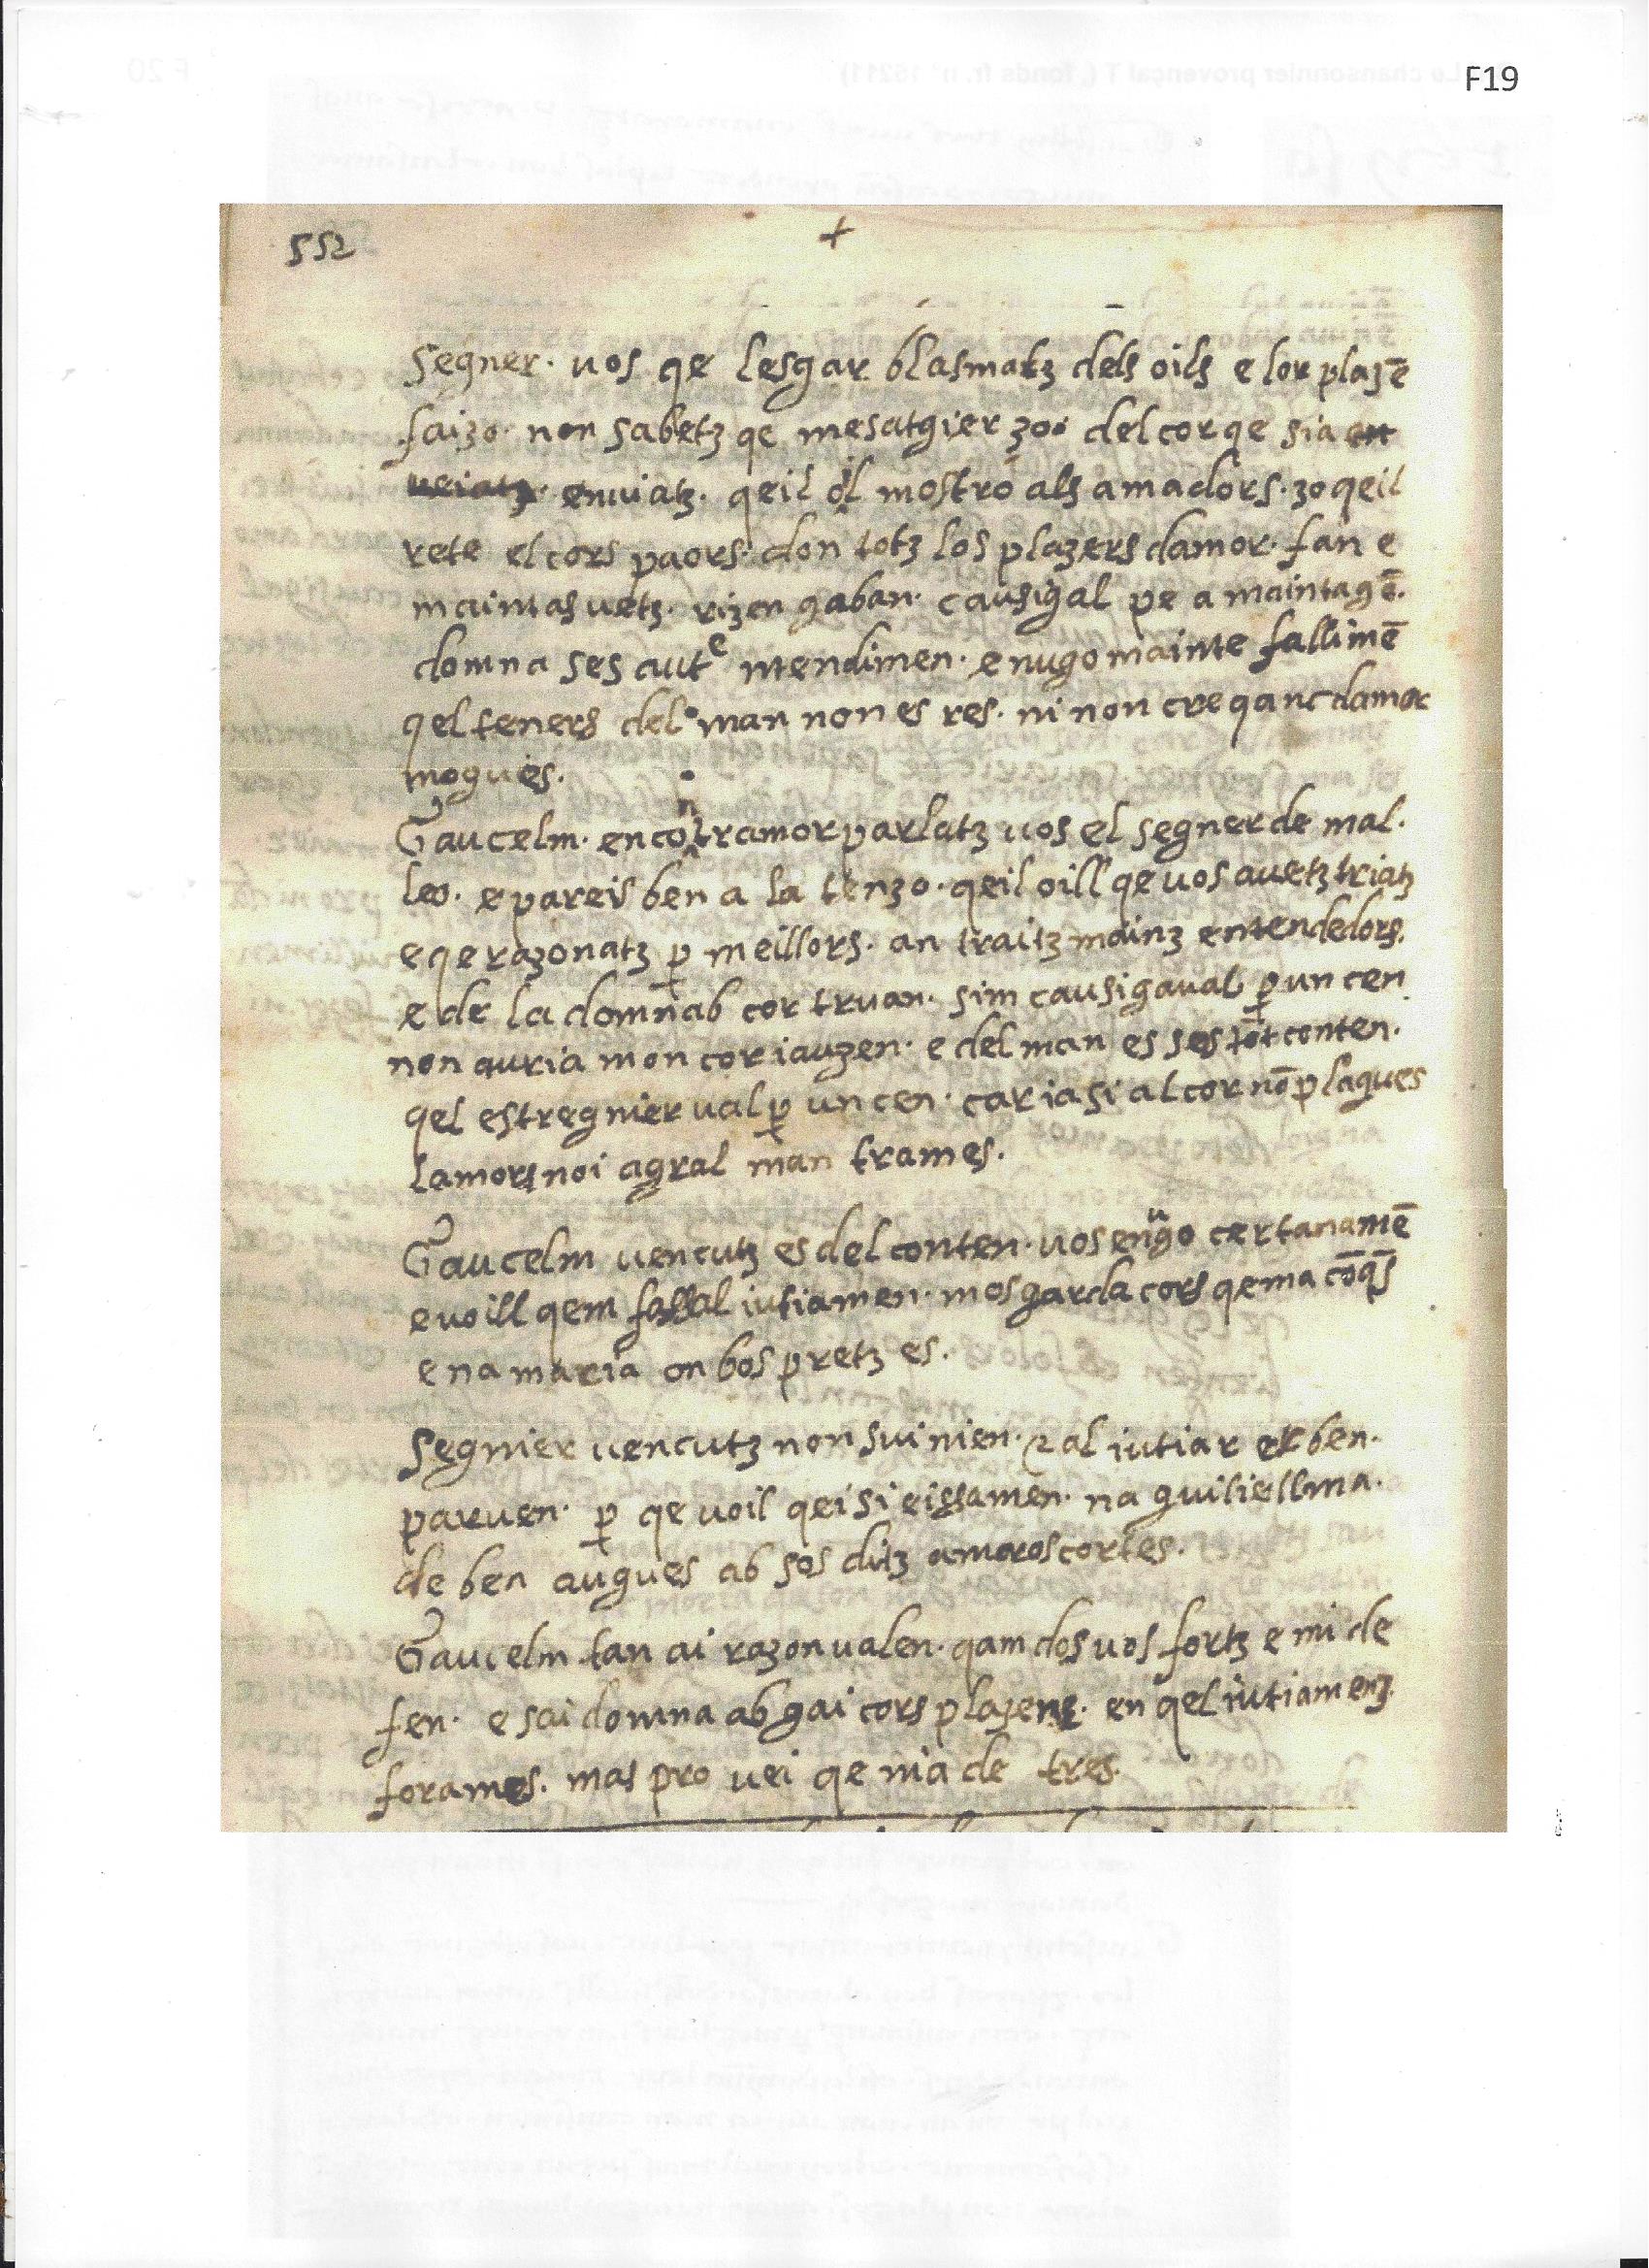 F19
552
+
segner · uos qe lesgar blasmatz dels oils e lor plazē
faizo · non sabetz qe mesatgier zoo del cor qe sia en
ueiatz · enuiatz · qeil oil mostro als amadors · zo qeil
rete el cors paors · don totz los plazers damor · fan e
maintas uetz · rizen gaban · causigal pe a mainta gē.
domna ses autᵉ ntendimen · e nugo mainte fallimē
qel teners del man non es res · ni non cre qanc damor
mogues.
Gaucelm · encontramor parlatz uos el segner de mal.
leo · e pareis ben a la tenzo · qeil oill qe uos auetz triatz
e qe razonatz ꝑ meillors · an traitz mainz entendedors.
e de la domnab cor truan · sim causigaual ꝑ un cen
non auria mon cor iauzen · e del man es ses tot conten.
qel estregnier ual ꝑ un cen · car ia si al cor nō plagues
lamors noi agral man trames.
Gaucelm uencutz es del conten · uos en ugo certanamē
e uoill qem fassal iutiamen · mos garda cors qe ma cōqs̄
e na maria on bos pretz es.
Segnier uencutz non sui nien · ⁊ al iutiar er ben.
paruen · ꝑ qe uoil qei si eissamen · na guiliellma.
de ben augues ab sos ditz amoros cortes.
Gaucelm tan ai razon ualen · qam dos uos fortz e mi de
fen · e sai domna ab gai cors plazenz · en qel iutiamenz
forames. mas pro uei qe nia de tres.